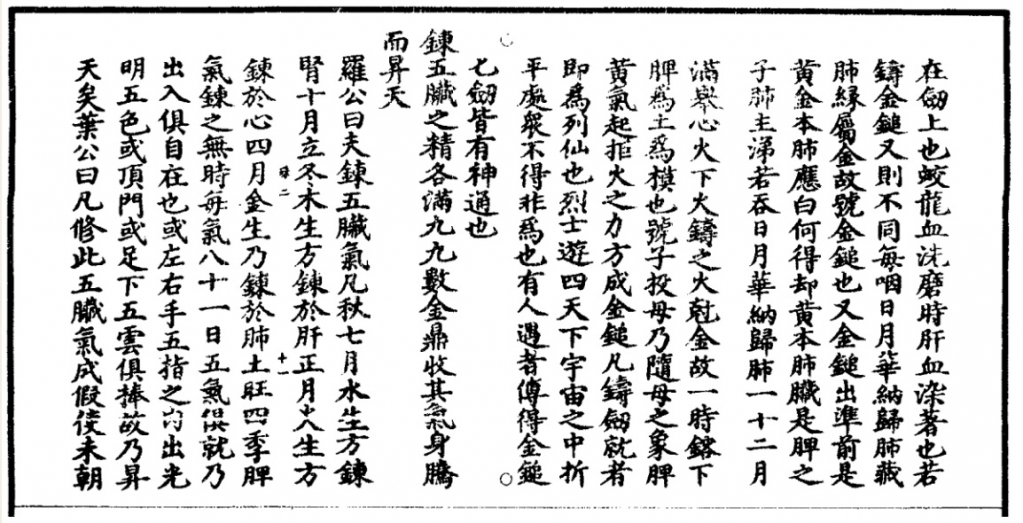 在劒上也蛟龍血洗磨時肝血染著也若
鑄金鎚又則不同每咽日月華納歸肺藏
肺緣屬金故號金鎚也又金鎚出準前是
黃金本肺應白何得却黃本肺臟是脾之
子肺主涕若吞日月華納歸肺一十二月
滿舉心火下火鑄之火尅金故一時鎔下
脾爲土爲模也號子投母乃隨母之象脾
黃氣起拒火之力方成金鎚凡鑄劒就者
即爲列仙也烈士遊四天下宇宙之中折
平處衆不得非爲也有人遇者傳得金鎚
匕劒皆有神通也
鍊五臟之精各滿九九數金鼎收其氣身騰
而昇天
羅公曰夫鍊五臟氣凡秋七月水生方鍊
腎十月立冬木生方鍊於肝正月火生方
二 十一
鍊於心四月金生乃鍊於肺土旺四季脾
氣鍊之無時每氣八十一日五氣俱就乃
出入俱自在也或左右手五指之內出光
明五色或頂門或足下五雲俱捧故乃昇
天矣葉公曰凡修此五臟氣成假使未朝